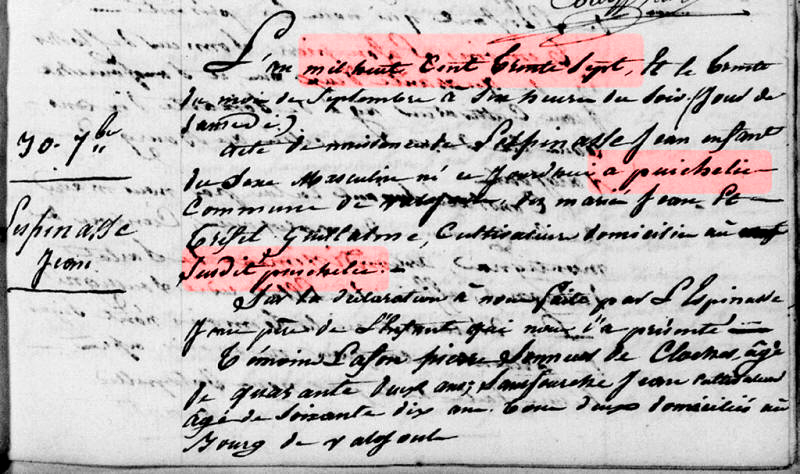 L'an mil huit Cent Trente Sept, Et le Trente
du mois de Septembre à Six heures du Soir (Jour de
Samedi)
Acte de naissance de Lespinasse Jean enfant
du Sexe Masculin né ce Jourdhui a puichelie
30. 7bre
Commune de valojoulx, des mariés Jean Et
Lespinasse
Jean
Guillaume, Cultivateur domicilié au
Susdit puichelie.
Sur la déclaration à nous faite par L'Espinasse
Jean père de L'Enfant qui nous l'a présenté
Témoins Lafon pierre Sonneur de Cloches, âgé
de quarante deux ans; Jean Cultivateur
âgé de Soixante dix ans. Tous deux domiciliés au
Bourg de valojoulx